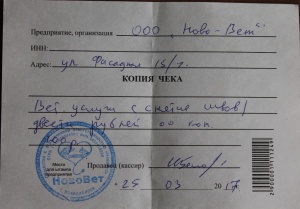 Предприятие, организация ООО "Ново-Вет"
ИНН:
Адрес: ул Фасадная 15/1.
КОПИЯ ЧЕКА
Вет услуги снятие швов/
двести рублей 00 коп
Продавец (кассир)
Место
для штампа
предприятия
НовоВет
25 03 2017.